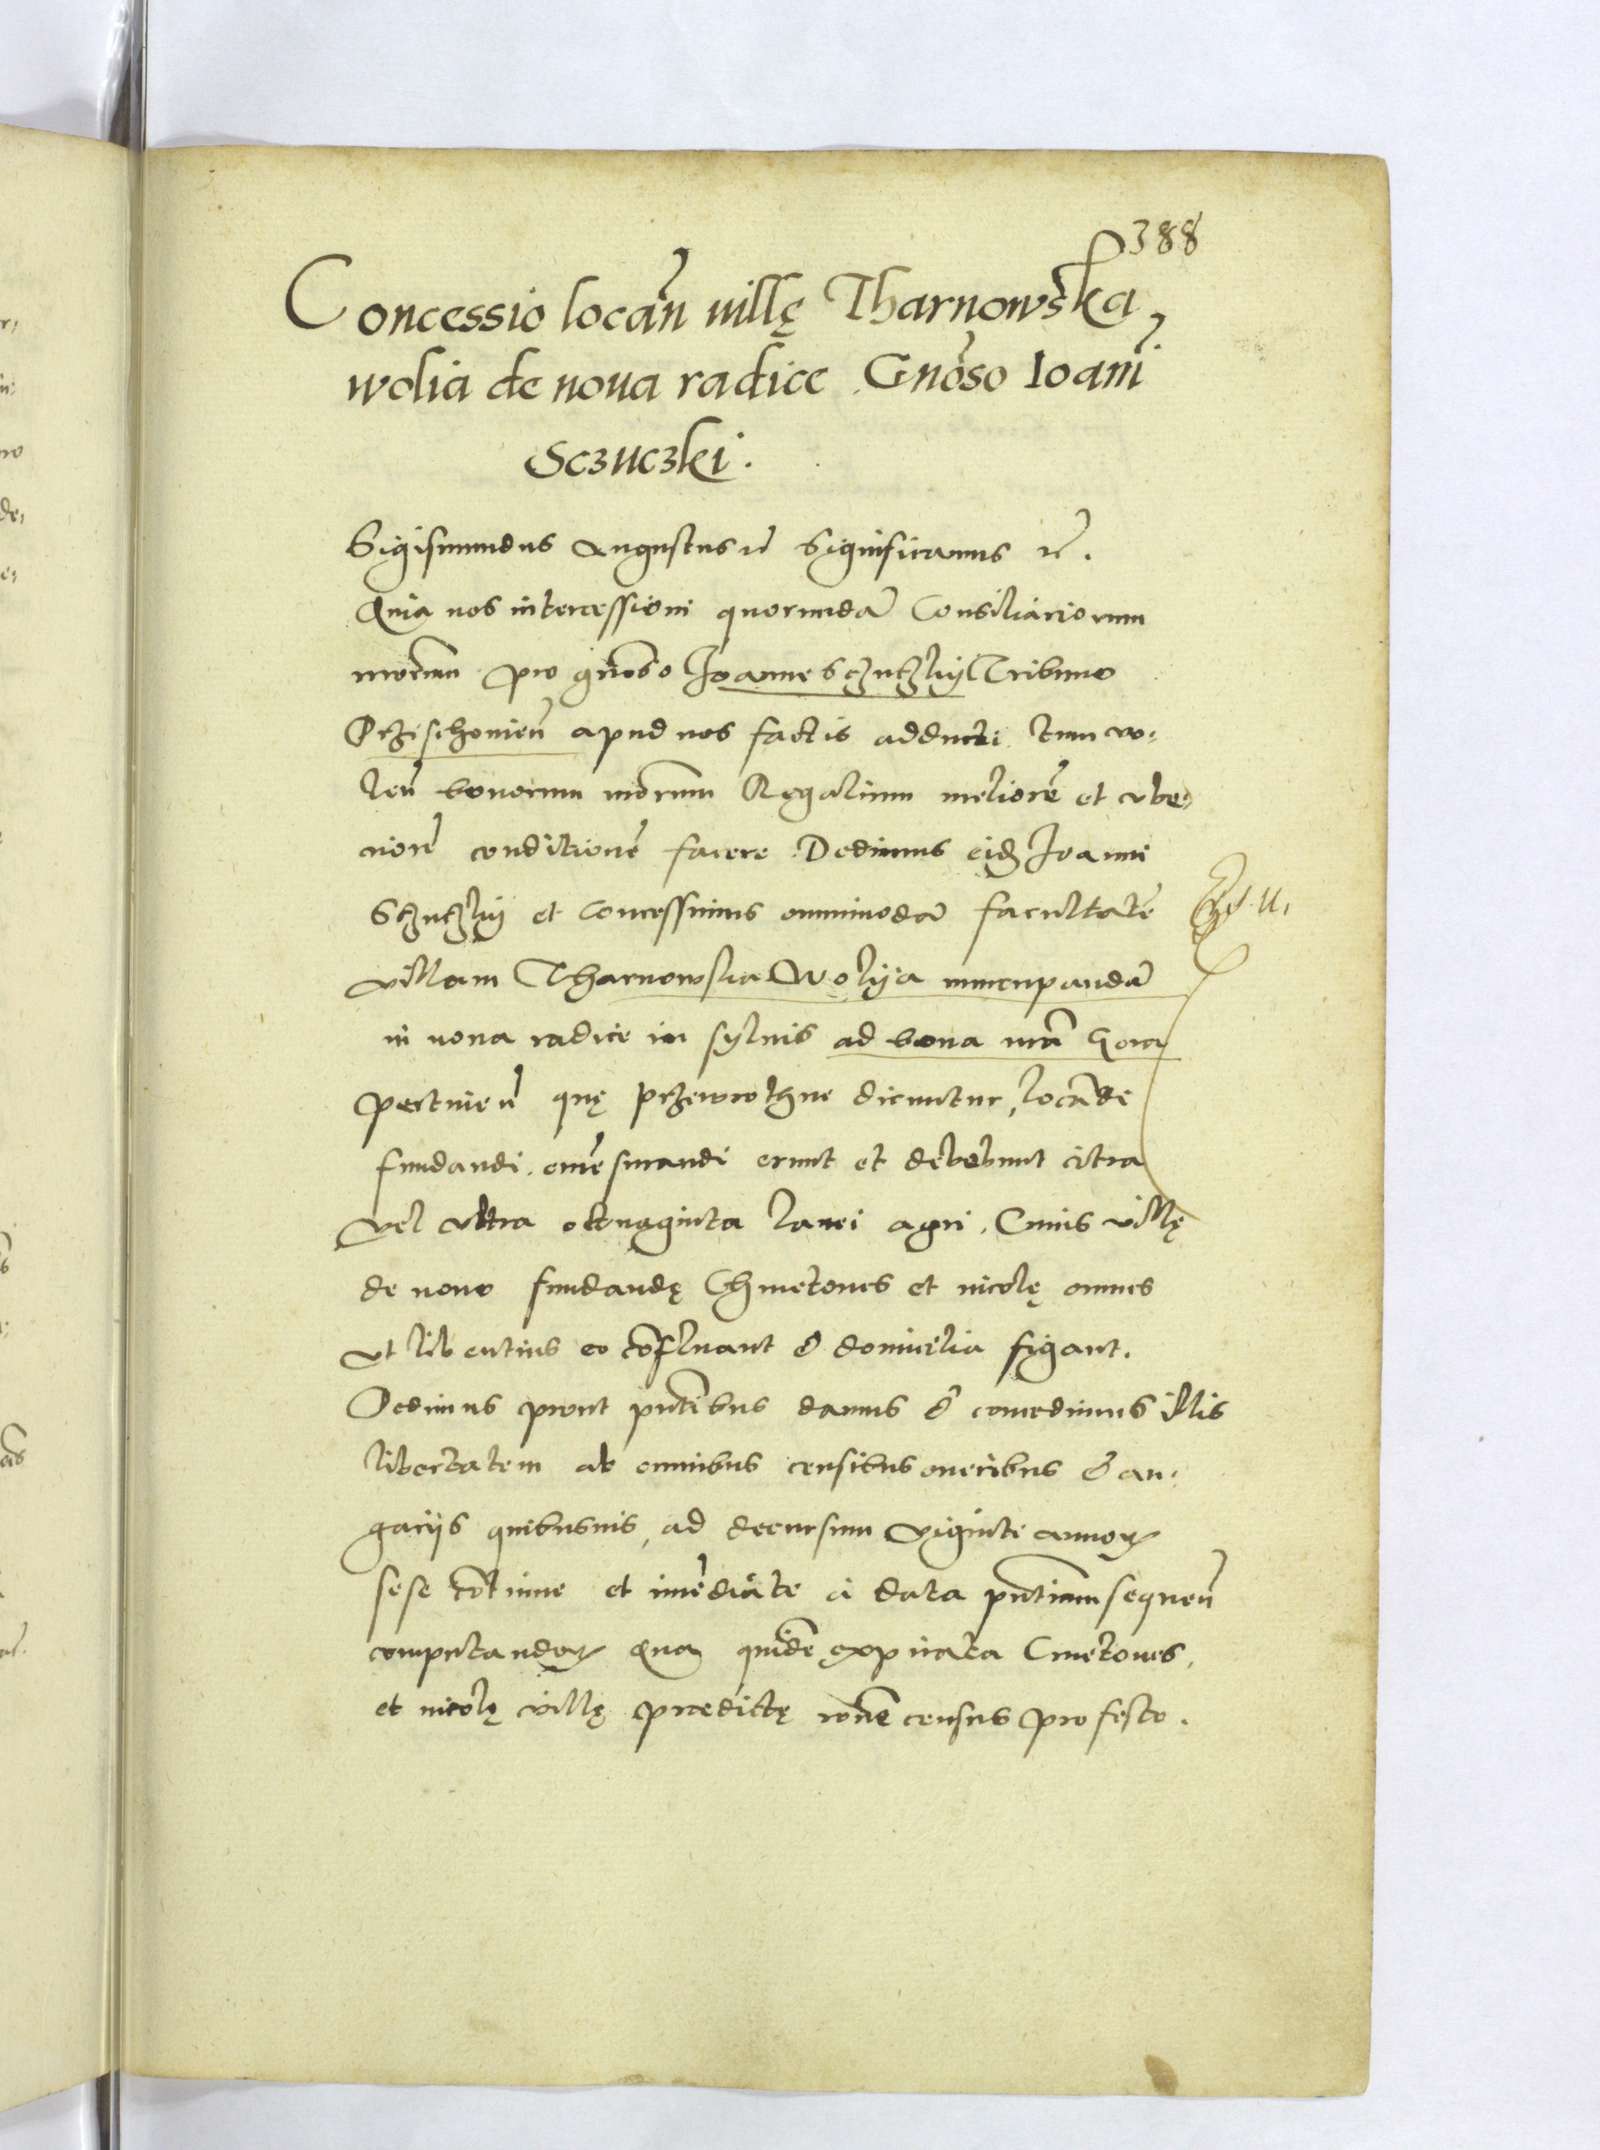 388
Concessio locan̄ villę Tharnowska
wolia de noua radice Gnōso Ioanī
Sczuczki.
Sigismundus Augustus rc̄ Significamus rc̄.
Quia nos intercessioni quorundā Consiliariorum
nrōrum pro gnōso Joanne Sczuczky Tribuno
apud nos factis adducti tum vo,
len̄ bonorum nrōrum Regalium meliorē et vbe,
riorē conditionē facere Dedimus eidȝ Joanni
Sczuczky et Concessimus omnimodā facultatē
villam Tharnowska Wolya nuncupandā
in noua radice in syluis ad bona nrā Gora
pertinen̄ quę przewrothne dicuntur, locādi
fundandi erunt et debebunt citra
vel vltra octuaginta lanei agri. Cuius villę
de nouo fundandę Chmetones et incolę omnes
vt libentius eo cōfluant & domicilia figant.
Dedimus prout pn̄tibus damus & concedimus illis
libertatem ab omnibus censibus oneribus & an,
garijs quibusuis, ad decursum viginti annoꝝ
sese cōtinue et imēdiate à data pn̄tium sequen̄
computandoꝝ Qua quidē expirata Cmetones,
et incolę villę praedictę rōne census pro festo.